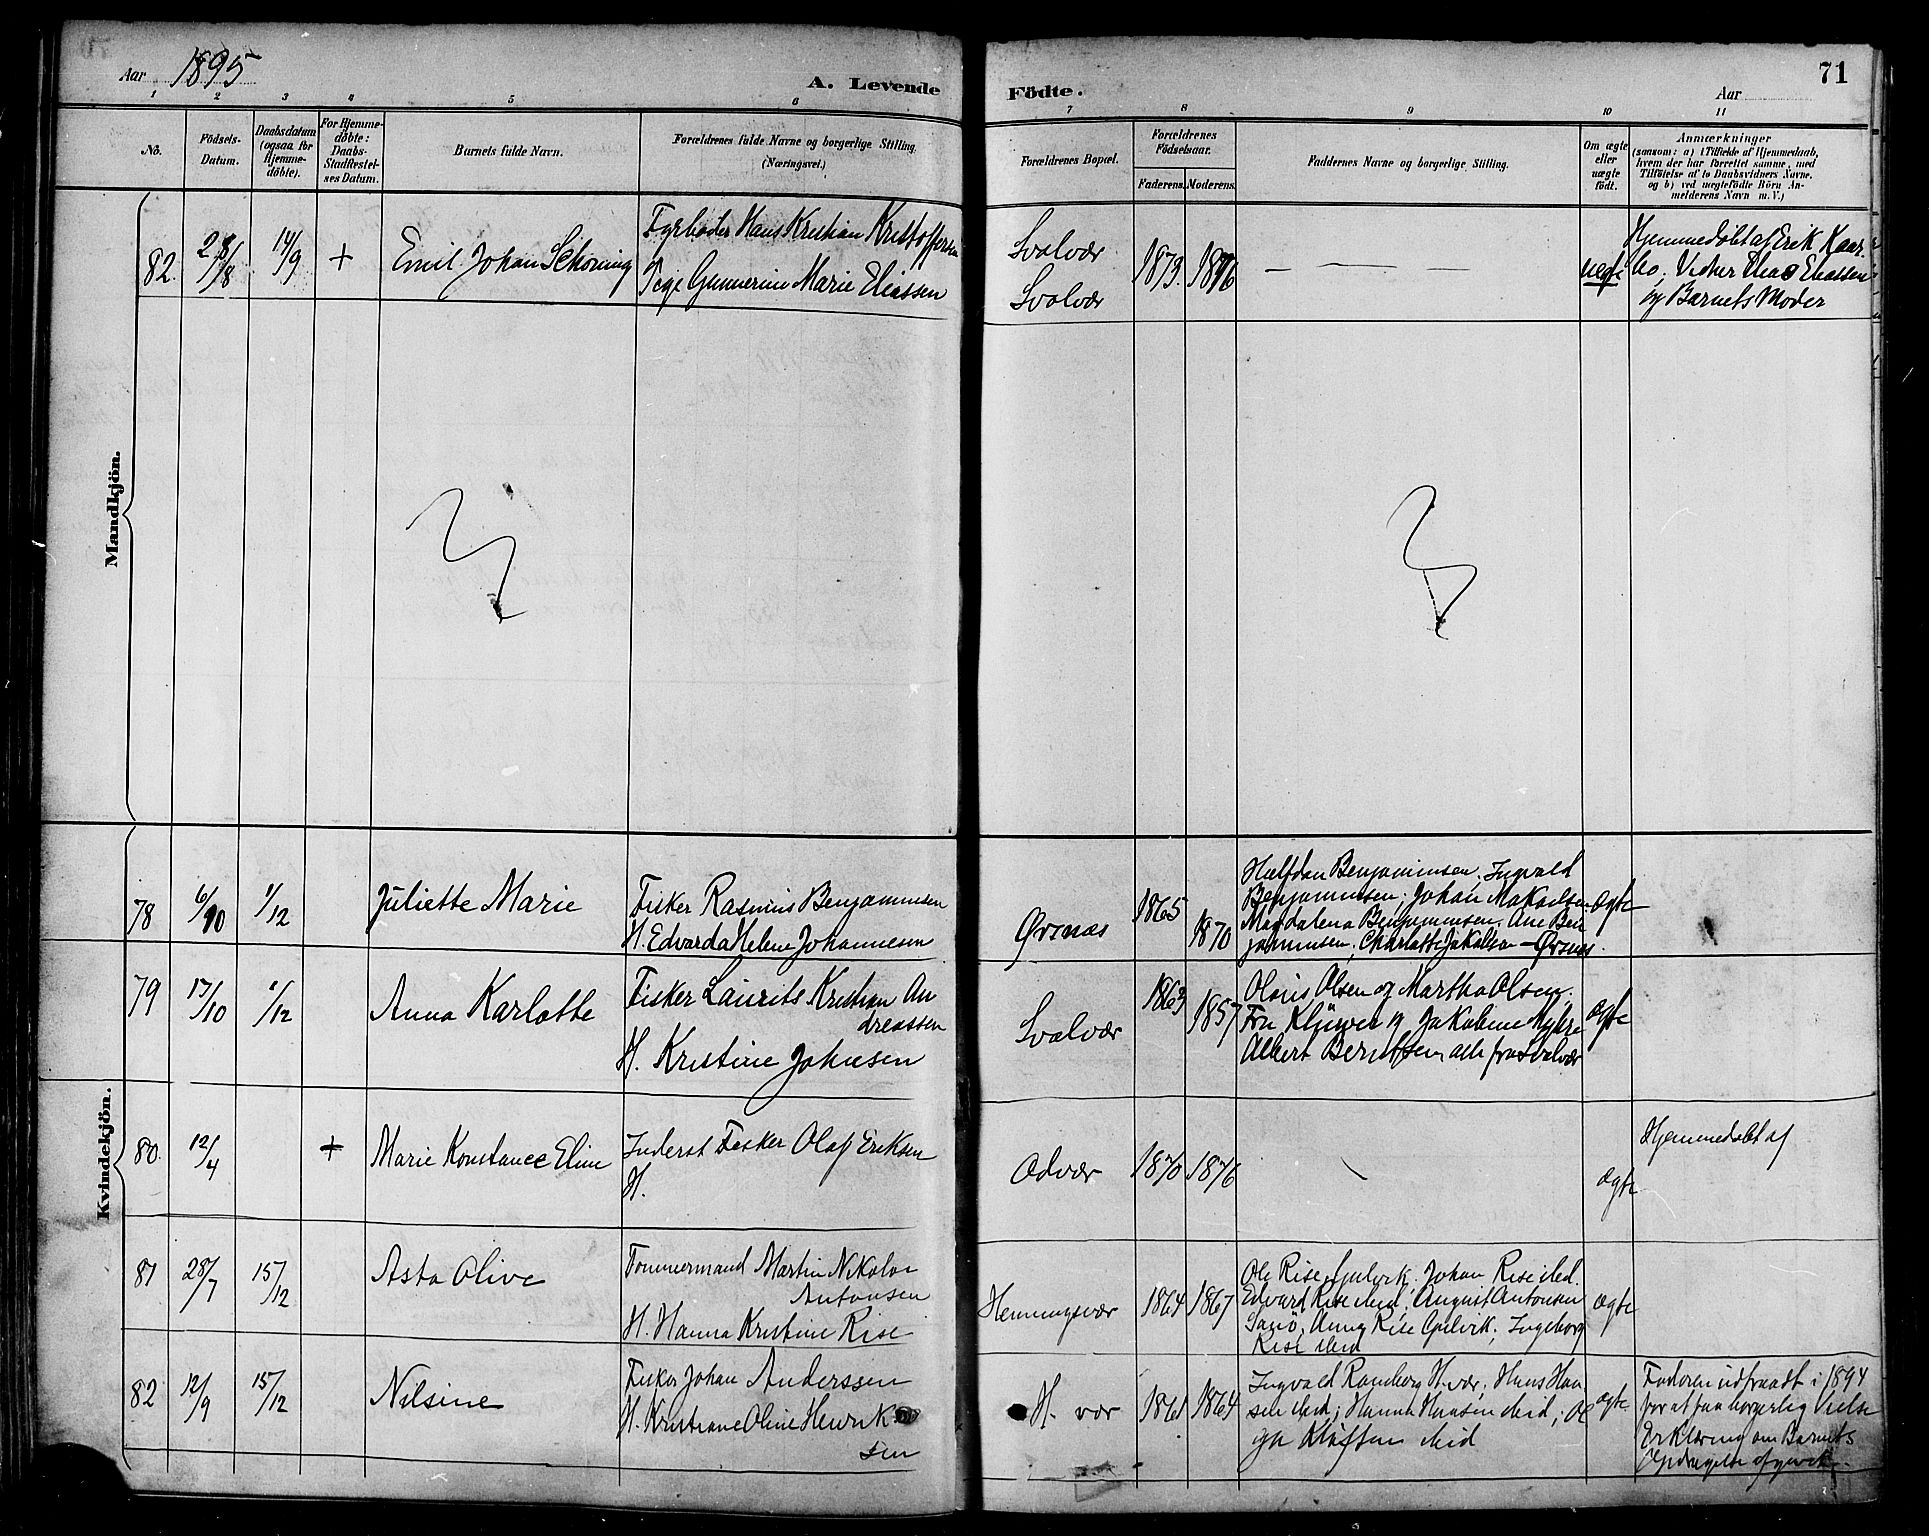 Aar 1895
A. Levende
Födte.
Aar
71
1 2 3 4 5 6
7 8 9 10 11
No.
Födsels-
Datum.
Daabsdatum
(ogsaa for
Hjemme-
döbte).
For Hjemme-
döbte:
Daabs-
Stadfæstel-
ses Datum.
Barnets fulde Navn.
Forældrenes fulde Navne og borgerlige Stilling.
(Næringsvei.)
Forældrenes Bopæl.
Forældrenes
Födselsaar.
Faderens. Moderens.
Faddernes Navne og borgerlige Stilling.
Om ægte
eller
uægte
födt.
Anmærkninger
(saasom: a) i Tilfælde af Hjemmedaab,
hvem der har forrettet samme, med
Tilföielse af to Daabsvidners Navne.
og b) ved uegtefödte Börn An-
melderens Navn m. V.)
Mandkjön.
82. 28/8 14/9 + Emil Johan Schöning
Fyrböder Hans Kristian Kristoffersen
Pige Gunnerine Marie Eliassen
Svolvær
Svolvær
1873. 1876
uegte
Hjemmedöbt af Erik Kaar-
bo. Vidner Elias Eliassen
og Barnets Moder
Kvindekjön.
78 6/10 1/12 Juliette Marie
Fisker Rasmus Benjaminsen
H. Edvarda Helene Johannesen
Ørsnæs
1865
1870
Halfdan Benjaminsen, Ingvald
Benjaminsen, Johan
Magdalena Benjaminsen, Ane Ben
jaminsen, Charlotte Jakobsen - Ørsnæs.
ægte
79 17/10 1/12 Anna Karlotte
Fisker Laurits Kristian An
dreassen
H. Kristine Johnsen
Svolvær
1863
1857
Olaus Olsen og Martha Olsen,
Fru Klüwer og Jakobine Myhre
Albert Berntsen alle fra Svolvær
ægte
80. 12/4 + Marie Konstance Eline
Inderst Fisker Olaf Eriksen
H.
Odvær
1870 1876
ægte
Hjemmedöbt af
81 28/7 15/12 Asta Olive
Tømmermand Martin Nikolai
Antonsen
H. Hanna Kristine Rise
Henningsvær
1864 1867
Ole Rise, Johan Rise ibid.
Edvard Rise ibid, August Antonsen
Anna Rise Ingeborg
Rise ibid
ægte
82 12/9 15/12 Nilsine
Fisker Johan Anderssen
H. Kristiane Oline Henrik
sen
H. vær
1861 1864
Ingvald Ramberg H.vær, Hans Han
sen ibid; Hanna Hansen ibid; Ol
ga Kloften ibid
ægte
Faderen udfraadt i 1894
for at faa borgerlig Vielse
Erklæring om Barnets
Opdragelse